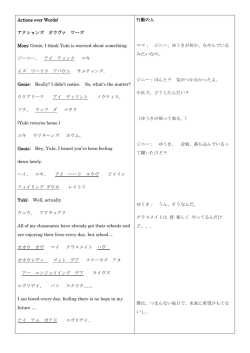 Actions over Words!
アクションズ　オウヴァ　ワーズ
Mom: Genie, I think Yuki is worried about something.
ジーニー、　アイ　フィンク　ユキ
イズ　ワーリド　アバウト　サムティング。
Genie: Really? I didn't notice.　So, what's the matter?
ウリアリー？　アイ　ディドント　ノウティス。
ソウ、　ワッツ　ザ　マタ？
(Yuki returns home.)
ユキ　ウリターンズ　ホウム。
Genie: Hey, Yuki, I heard you've been feeling
down lately.
ヘイ、　ユキ、　アイ　ハーリ　ユウヴ　ビイイン
フィイリング ダウヌ　レイトリ
Yuki: Well, actually.
ウェウ、　アクチュアリ
All of my classmates have already got their schools and
are enjoying their lives every day, but school…
オオウ オヴ　マイ　クラスメイト　ハヴ
オオウレディ　ゴット　デア　スクーウズ　アヌ
アー　エンジョイイング　デア　ライヴズ
エヴリデイ、　バト　スクウウ。。。
I am bored every day, feeling there is no hope in my
future …
アイ　アム　ボアド　エヴリデイ、
行動の人
ママ：　ジニー、ゆうきが何か、なやんでいる
みたいなの。
ジニー：ほんと？　気がつかなかったよ。
それで、どうしたんだい？
（ゆうきが帰って来る。）
ジニー：ゆうき、　近頃、落ち込んでいるっ
て聞いたけど？
ゆうき：　うん、そうなんだ。
クラスメイトは　皆　楽しく　やってるんだけ
ど、、、
僕は、つまんない毎日で、未来に希望がもてな
いし。